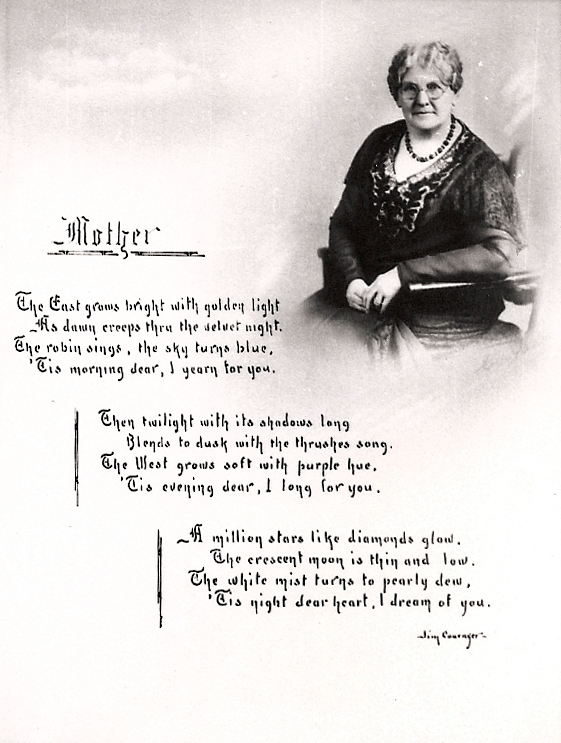 Mother
The East grows bright with golden light
As dawn creeps thru the velvet night.
The robin sings, the sky turns blue,
'Tis morning dear, I yearn for you.
Then twilight with its shadows long
Blends to dusk with the thrushes song.
The West grows soft with purple hue,
'Tis evening dear, I long for you.
A million stars like diamonds glow.
The crescent moon is thin and low.
The white mist turns to pearly dew,
'Tis night dear heart, I dream of you.
-Jim Courager-